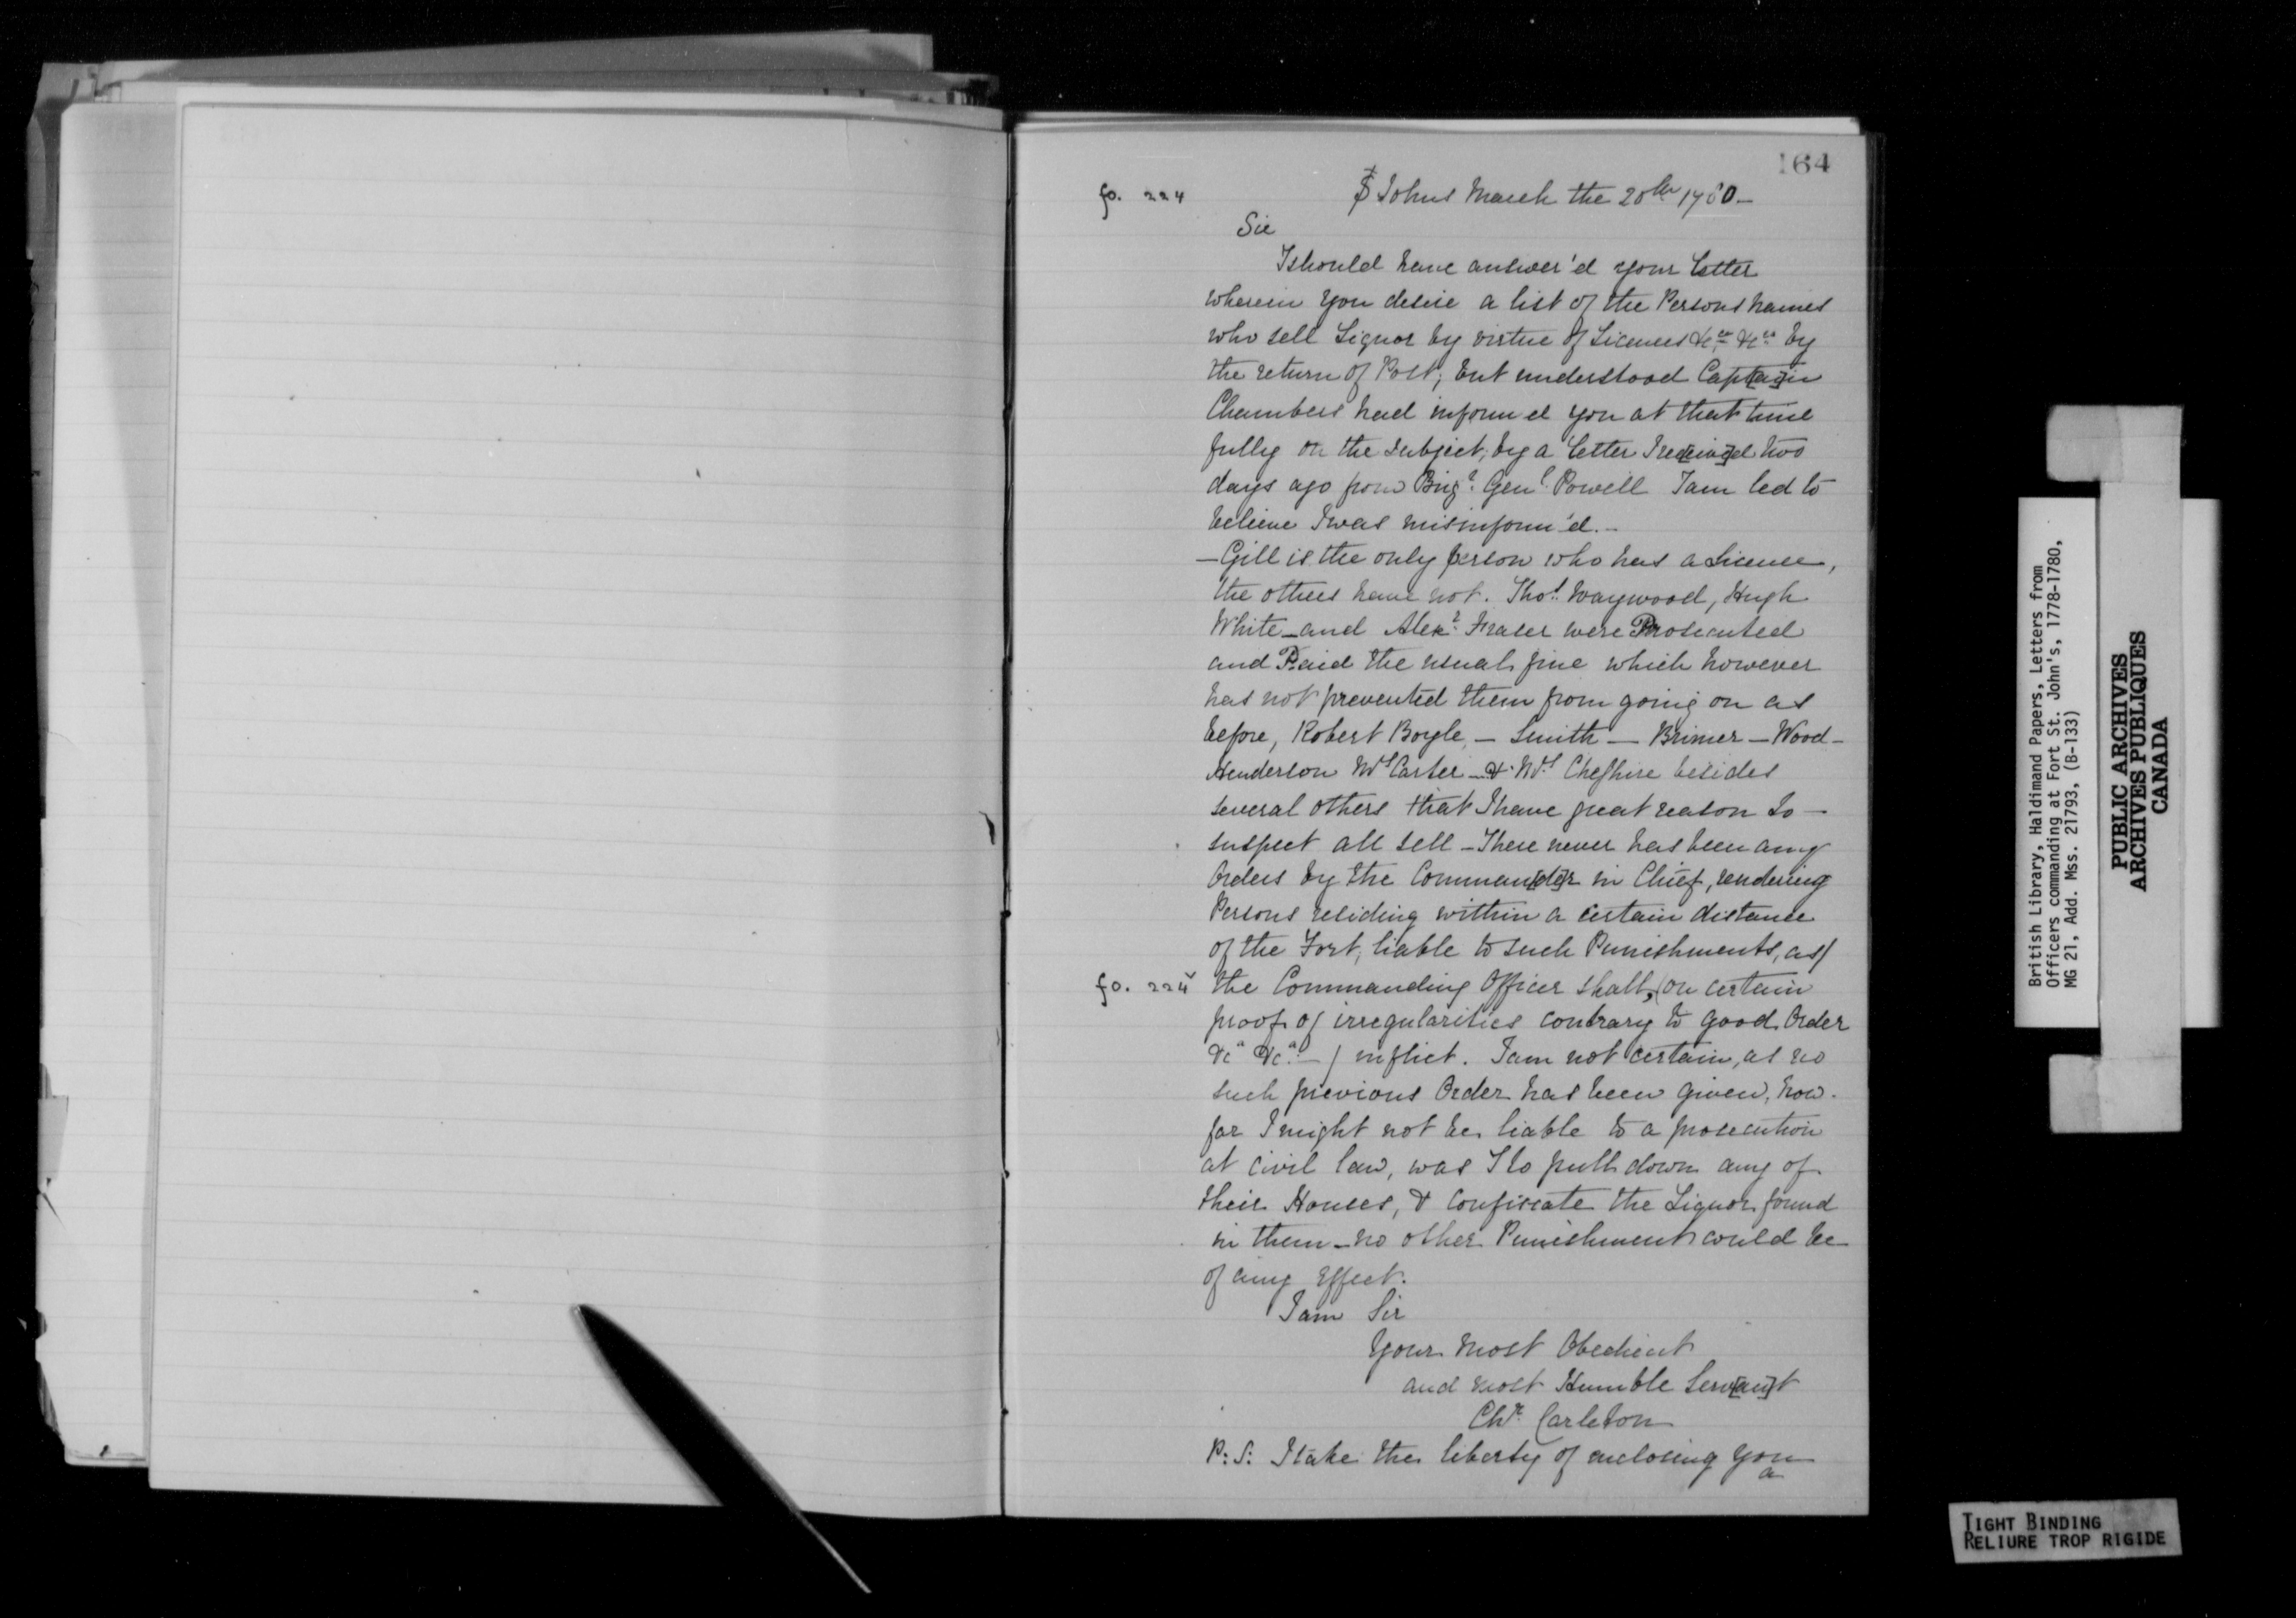 164
fo. 224
St Johns March the 20th 1780 —
Sir
I should have answer'd your letter
wherein you desire a list of the Persons names
who sell Liquor by virtue of Licenses &ca &ca by
the return of Post; but understood Capt[ai]n
Chambers had inform'd you at that time
fully on the subject; by a letter I rec[eive]d two
days ago from Brigr Genl Powell I am led to
believe I was misinform'd. —
— Gill is the only person who has a License,
the others have not. Thos. Waywood, Hugh
White — and Alexr. Fraser were Prosecuted
and Paid the usual fine which however
has not prevented them from going on as
before, Robert Boyle, — Smith — Brimer — Wood —
Henderson Mrs Carter — & Mrs Cheshire besides
several others that I have great reason to —
suspect all sell — There never has been any
Orders by the Comman[de]r in Chief, rendering
Persons residing within a certain distance
of the Fort, liable to such Punishments, as/
fo. 224v the Commanding Officer shall, (on certain
proof of irregularities contrary to good Order
&ca &ca. —) inflict. I am not certain, as no
such previous Order has been given, how
far I might not be liable to a prosecution
at civil law, was I to pull down any of
their Houses, & confiscate the Liquor found
in them — no other Punishment could be
of any Effect.
I am Sir
Your most Obedient
and most Humble Serv[an]t
Chr. Carleton
P: S: I take the liberty of enclosing you
a
British Library, Haldimand Papers, Letters from
Officers commanding at Fort St. John's, 1778-1780,
MG 21, Add. Mss. 21793, (B-133)
PUBLIC ARCHIVES
ARCHIVES PUBLIQUES
CANADA
TIGHT BINDING
RELIURE TROP RIGIDE